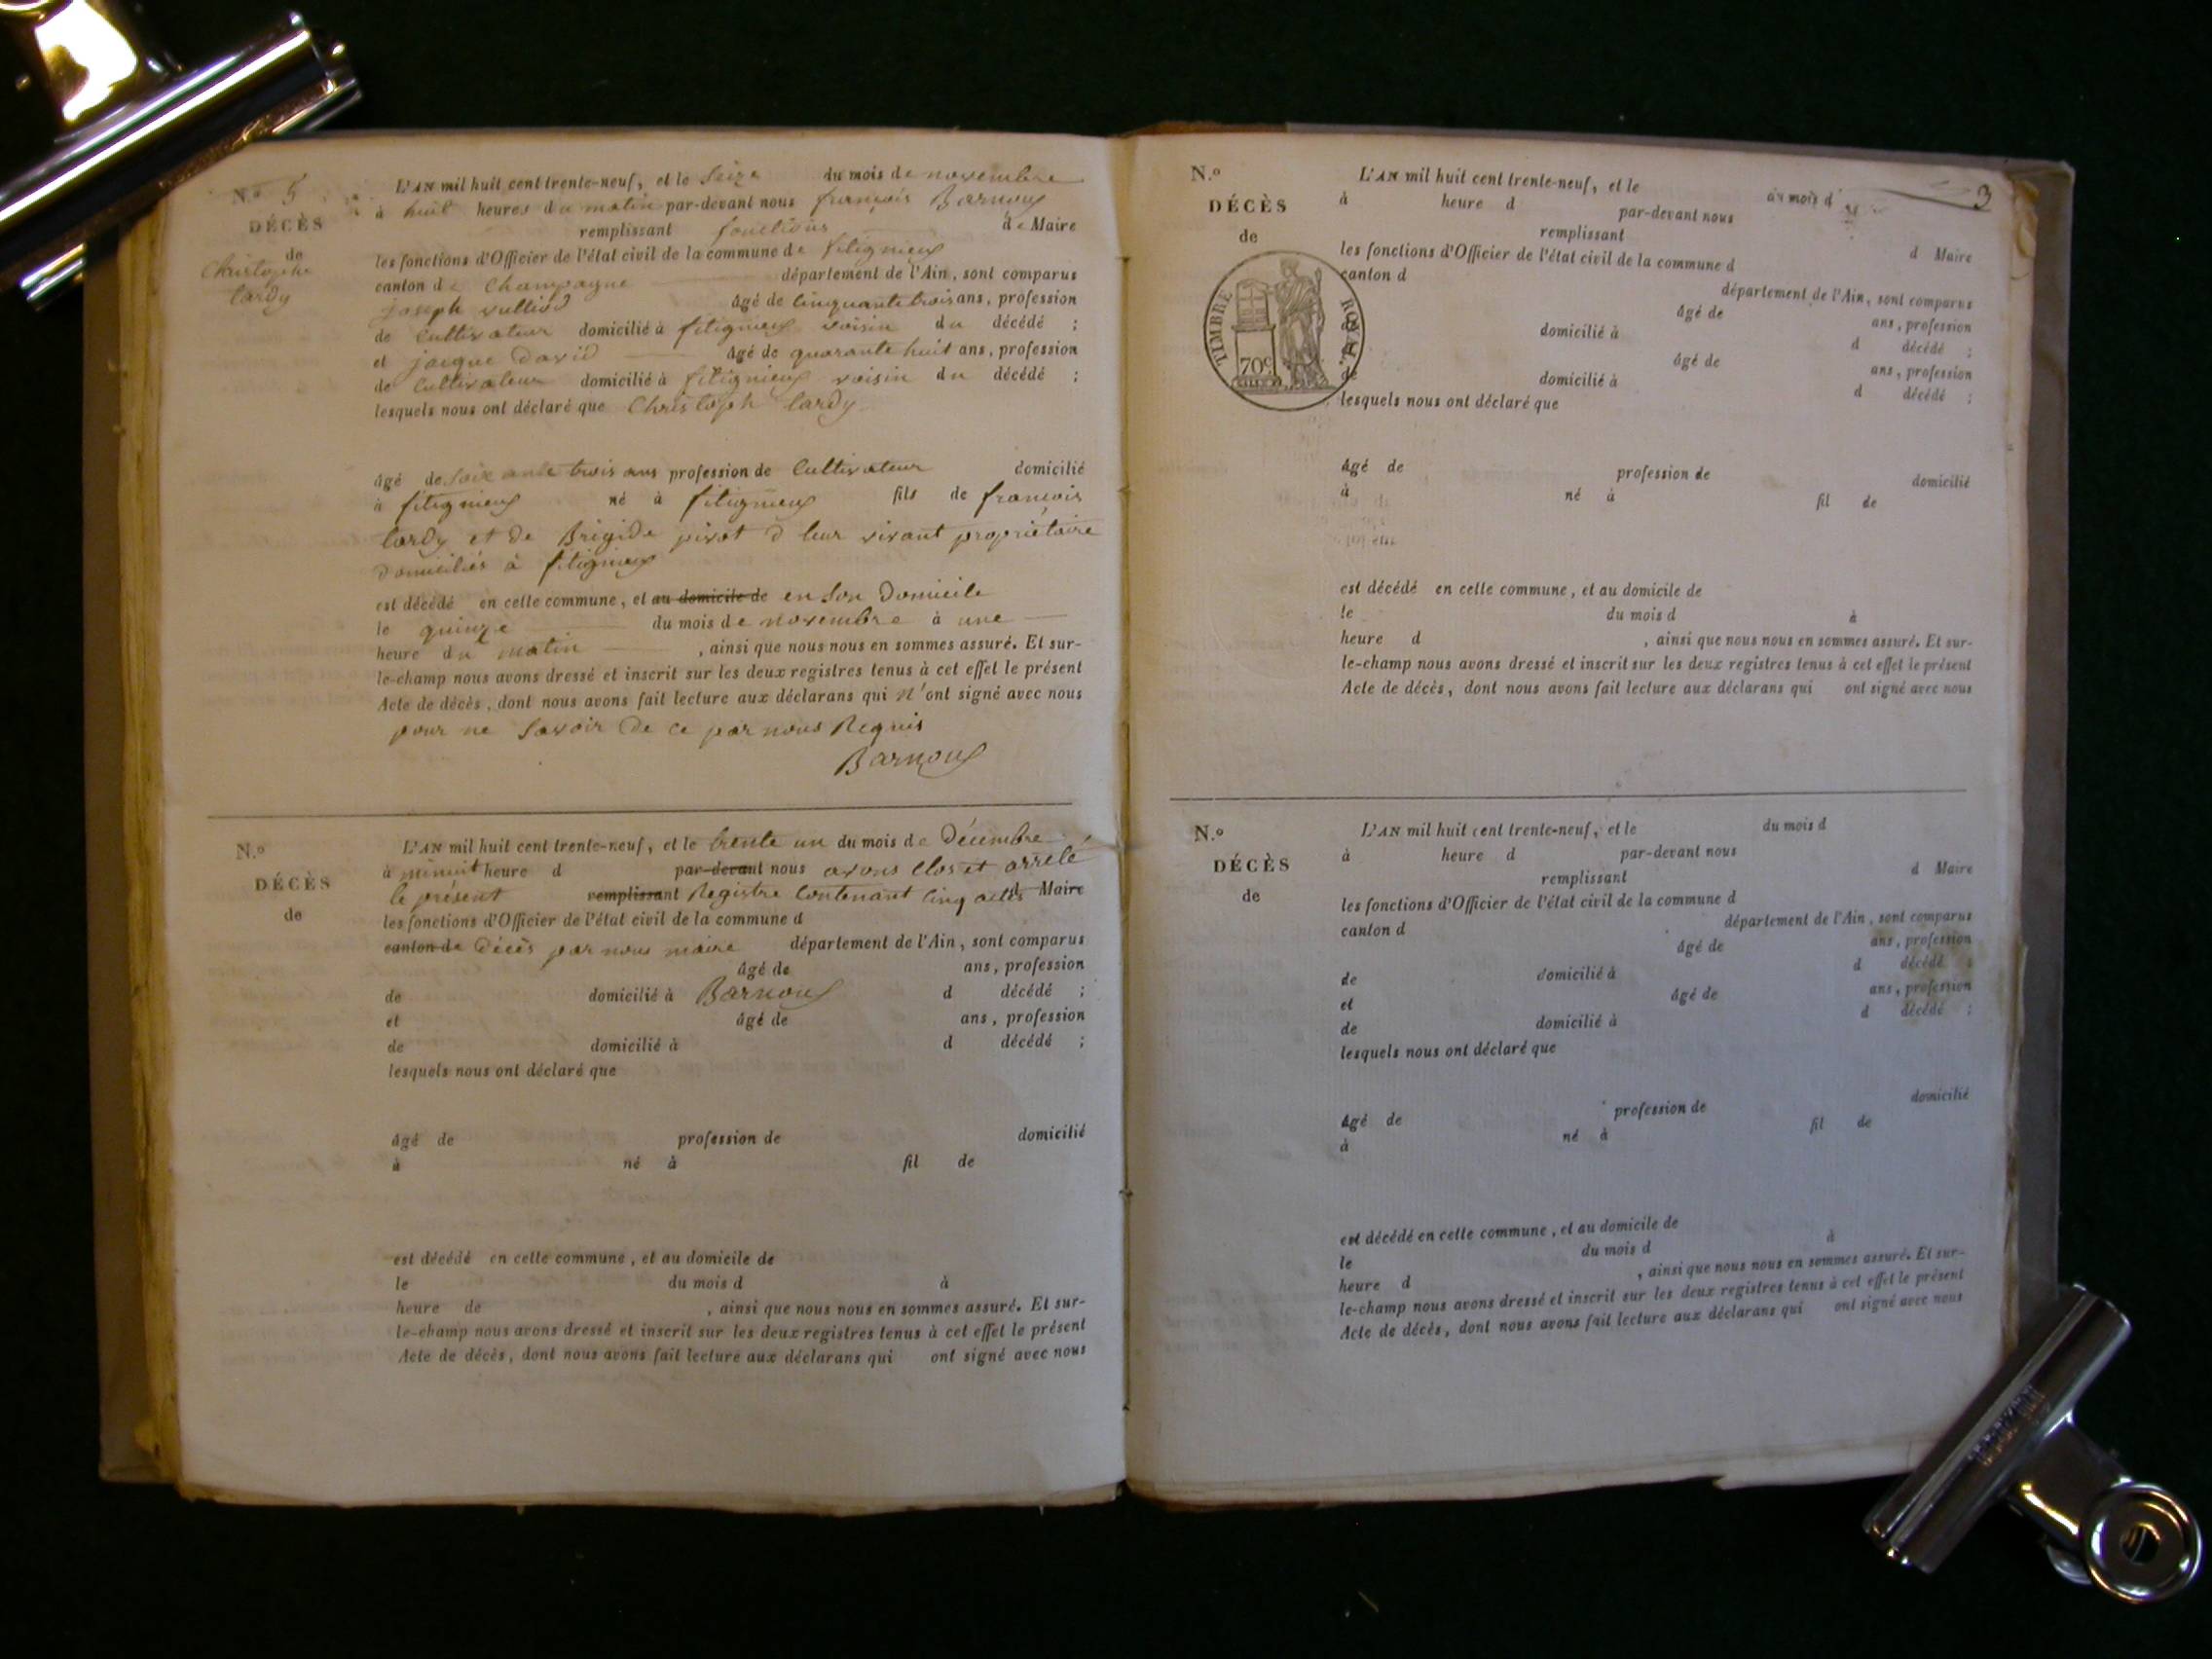 N.º 5
DÉCÈS
de
Christophe
Cardy
L'AN mil huit cent trente-neuf, et le Seize du mois de novembre
à huit heures du matin par-devant nous françois Barnoux
remplissant fonctions de Maire
les fonctions d'Officier de l'état civil de la commune de fitignieux
canton de Champagne département de l'Ain, sont comparus
joseph âgé de Cinquante trois ans, profession
de Cultivateur domicilié à fitignieux voisin du décédé ;
et jacque David âgé de quarante huit ans, profession
de Cultivateur domicilié à fitignieux voisin du décédé ;
lesquels nous ont déclaré que Christoph Cardy
âgé de Soixante trois ans profession de Cultivateur domicilié
à fitignieux né à fitignieux fils de francois
Cardy et de Brigide pivot d leur vivant propriétaire
domiciliés à fitignieux
est décédé en cette commune, et au domicile de en Son Domicile
le quinze du mois de novembre à une
heure du matin , ainsi que nous nous en sommes assuré. Et sur-
le-champ nous avons dressé et inscrit sur les deux registres tenus à cet effet le présent
Acte de décès, dont nous avons fait lecture aux déclarans qui n'ont signé avec nous
pour ne Savoir de ce par nous Requis
Barnoux
N.º
DÉCÈS
de
L'AN mil huit cent trente-neuf, et le trente un du mois de Décembre
à minuit heure d par-devant nous avons Clos et arrelé
le présent remplissant Registre Contenant Cinq actes d Maire
les fonctions d'Officier de l'état civil de la commune d
canton de Décès par nous maire département de l'Ain, sont comparus
âgé de ans, profession
de domicilié à Barnoux d décédé ;
et âgé de ans, profession
de domicilié à d décédé ;
lesquels nous ont déclaré que
âgé de profession de domicilié
à né à fil de
est décédé en cette commune, et au domicile de
le du mois d à
heure de , ainsi que nous nous en sommes assuré. Et sur-
le-champ nous avons dressé et inscrit sur les deux registres tenus à cet effet le présent
Acte de décès, dont nous avons fait lecture aux déclarans qui ont signé avec nous
3
N.º
DÉCÈS
de
TIMBRE ROYAL
70c
L'AN mil huit cent trente-neuf, et le du mois d
à heure d par-devant nous
remplissant d Maire
les fonctions d'Officier de l'état civil de la commune d
canton d département de l'Ain, sont comparus
âgé de ans, profession
domicilié à d décédé ;
âgé de ans, profession
de domicilié à d décédé ;
lesquels nous ont déclaré que
âgé de profession de domicilié
à né à fil de
est décédé en cette commune, et au domicile de
le du mois d à
heure d , ainsi que nous nous en sommes assuré. Et sur-
le-champ nous avons dressé et inscrit sur les deux registres tenus à cet effet le présent
Acte de décès, dont nous avons fait lecture aux déclarans qui ont signé avec nous
N.º
DÉCÈS
de
L'AN mil huit cent trente-neuf, et le du mois d
à heure d par-devant nous
remplissant d Maire
les fonctions d'Officier de l'état civil de la commune d
canton d département de l'Ain, sont comparus
âgé de ans, profession
de domicilié à d décédé ;
et âgé de ans, profession
de domicilié à d décédé ;
lesquels nous ont déclaré que
âgé de profession de domicilié
à né à fil de
est décédé en cette commune, et au domicile de
le du mois d à
heure d , ainsi que nous nous en sommes assuré. Et sur-
le-champ nous avons dressé et inscrit sur les deux registres tenus à cet effet le présent
Acte de décès, dont nous avons fait lecture aux déclarans qui ont signé avec nous